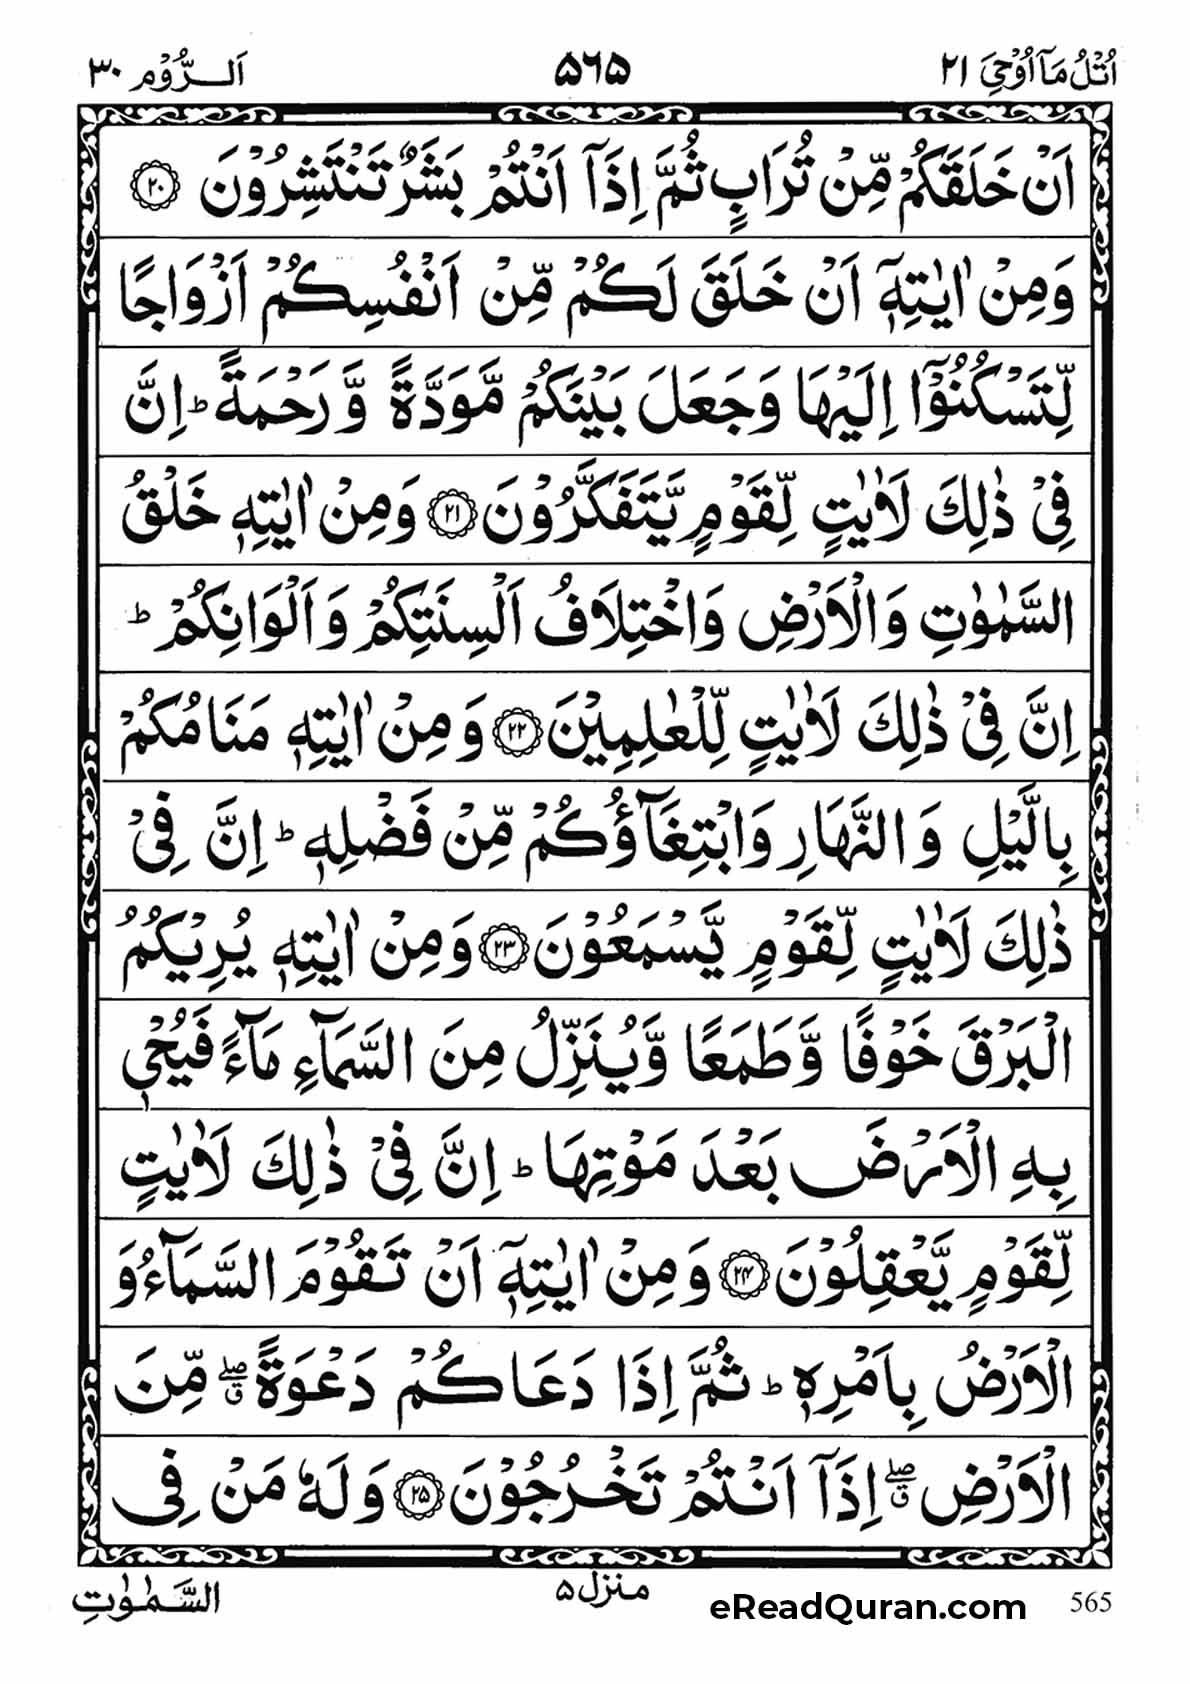 اُتْلُ مَاۤ اُوْحِیَ ٢١
٥٦٥
اَلرُّوْم ٣٠
اَنْ خَلَقَكُمْ مِّنْ تُرَابٍ ثُمَّ اِذَاۤ اَنْتُمْ بَشَرٌ تَنْتَشِرُوْنَ ۝٢٠
وَمِنْ اٰیٰتِهٖۤ اَنْ خَلَقَ لَكُمْ مِّنْ اَنْفُسِكُمْ اَزْوَاجًا
لِّتَسْكُنُوْۤا اِلَیْهَا وَجَعَلَ بَیْنَكُمْ مَّوَدَّةً وَّ رَحْمَةً ؕ اِنَّ
فِیْ ذٰلِكَ لَاٰیٰتٍ لِّقَوْمٍ یَّتَفَكَّرُوْنَ ۝٢١ وَمِنْ اٰیٰتِهٖ خَلْقُ
السَّمٰوٰتِ وَالْاَرْضِ وَاخْتِلَافُ اَلْسِنَتِكُمْ وَاَلْوَانِكُمْ ؕ
اِنَّ فِیْ ذٰلِكَ لَاٰیٰتٍ لِّلْعٰلِمِیْنَ ۝٢٢ وَمِنْ اٰیٰتِهٖ مَنَامُكُمْ
بِالَّیْلِ وَالنَّهَارِ وَابْتِغَآؤُكُمْ مِّنْ فَضْلِهٖ ؕ اِنَّ فِیْ
ذٰلِكَ لَاٰیٰتٍ لِّقَوْمٍ یَّسْمَعُوْنَ ۝٢٣ وَمِنْ اٰیٰتِهٖ یُرِیْكُمُ
الْبَرْقَ خَوْفًا وَّطَمَعًا وَّیُنَزِّلُ مِنَ السَّمَآءِ مَآءً فَیُحْیٖ
بِهِ الْاَرْضَ بَعْدَ مَوْتِهَا ؕ اِنَّ فِیْ ذٰلِكَ لَاٰیٰتٍ
لِّقَوْمٍ یَّعْقِلُوْنَ ۝٢٤ وَمِنْ اٰیٰتِهٖۤ اَنْ تَقُوْمَ السَّمَآءُ وَ
الْاَرْضُ بِاَمْرِهٖ ؕ ثُمَّ اِذَا دَعَاكُمْ دَعْوَةً ۖۗ مِّنَ
الْاَرْضِ ۖۗ اِذَاۤ اَنْتُمْ تَخْرُجُوْنَ ۝٢٥ وَلَهٗ مَنْ فِی
السَّمٰوٰتِ
منزل ٥
eReadQuran.com
565